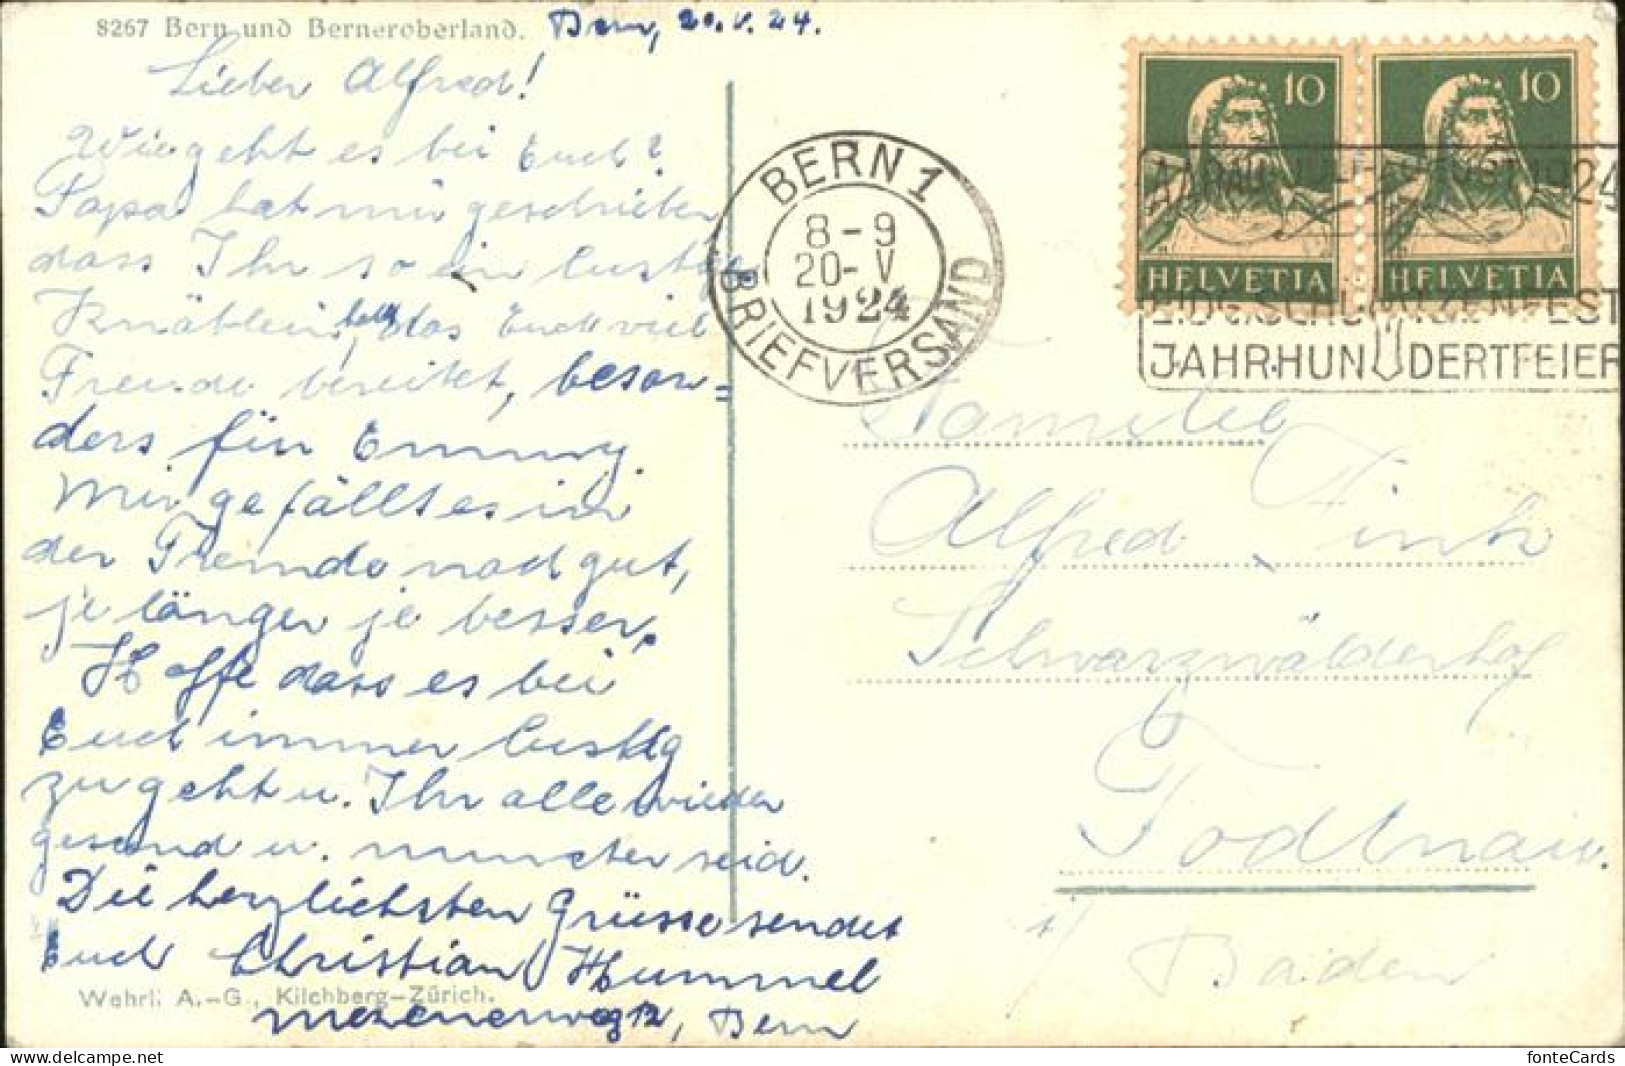 8267 Bern und Berneroberland.
Bern, 20.V.24.
Lieber Alfred!
Wie geht es bei Euch?
Papa hat mir geschrieben
dass Ihr so ein lustig
Knäblein habt das Euch viel
Freude bereitet, beson=
ders für Emmy.
Mir gefällt es in
der Fremde noch gut,
je länger je besser.
Hoffe dass es bei
Euch immer lustig
zu geht u. Ihr alle wieder
gesund u. munter seid.
Die herzlichsten Grüsse sendet
Euch Christian Hummel
Bern
Wehrli A.-G., Kilchberg-Zürich.
BERN 1
8-9
20-V
1924
BRIEFVERSAND
10
HELVETIA
10
HELVETIA
AARAU 1924
EIDG. SCHÜTZENFEST
JAHRHUNDERTFEIER
Familie
Alfred Fink
Schwarzwälderhof
Todtnau.
Baden
fonteCards